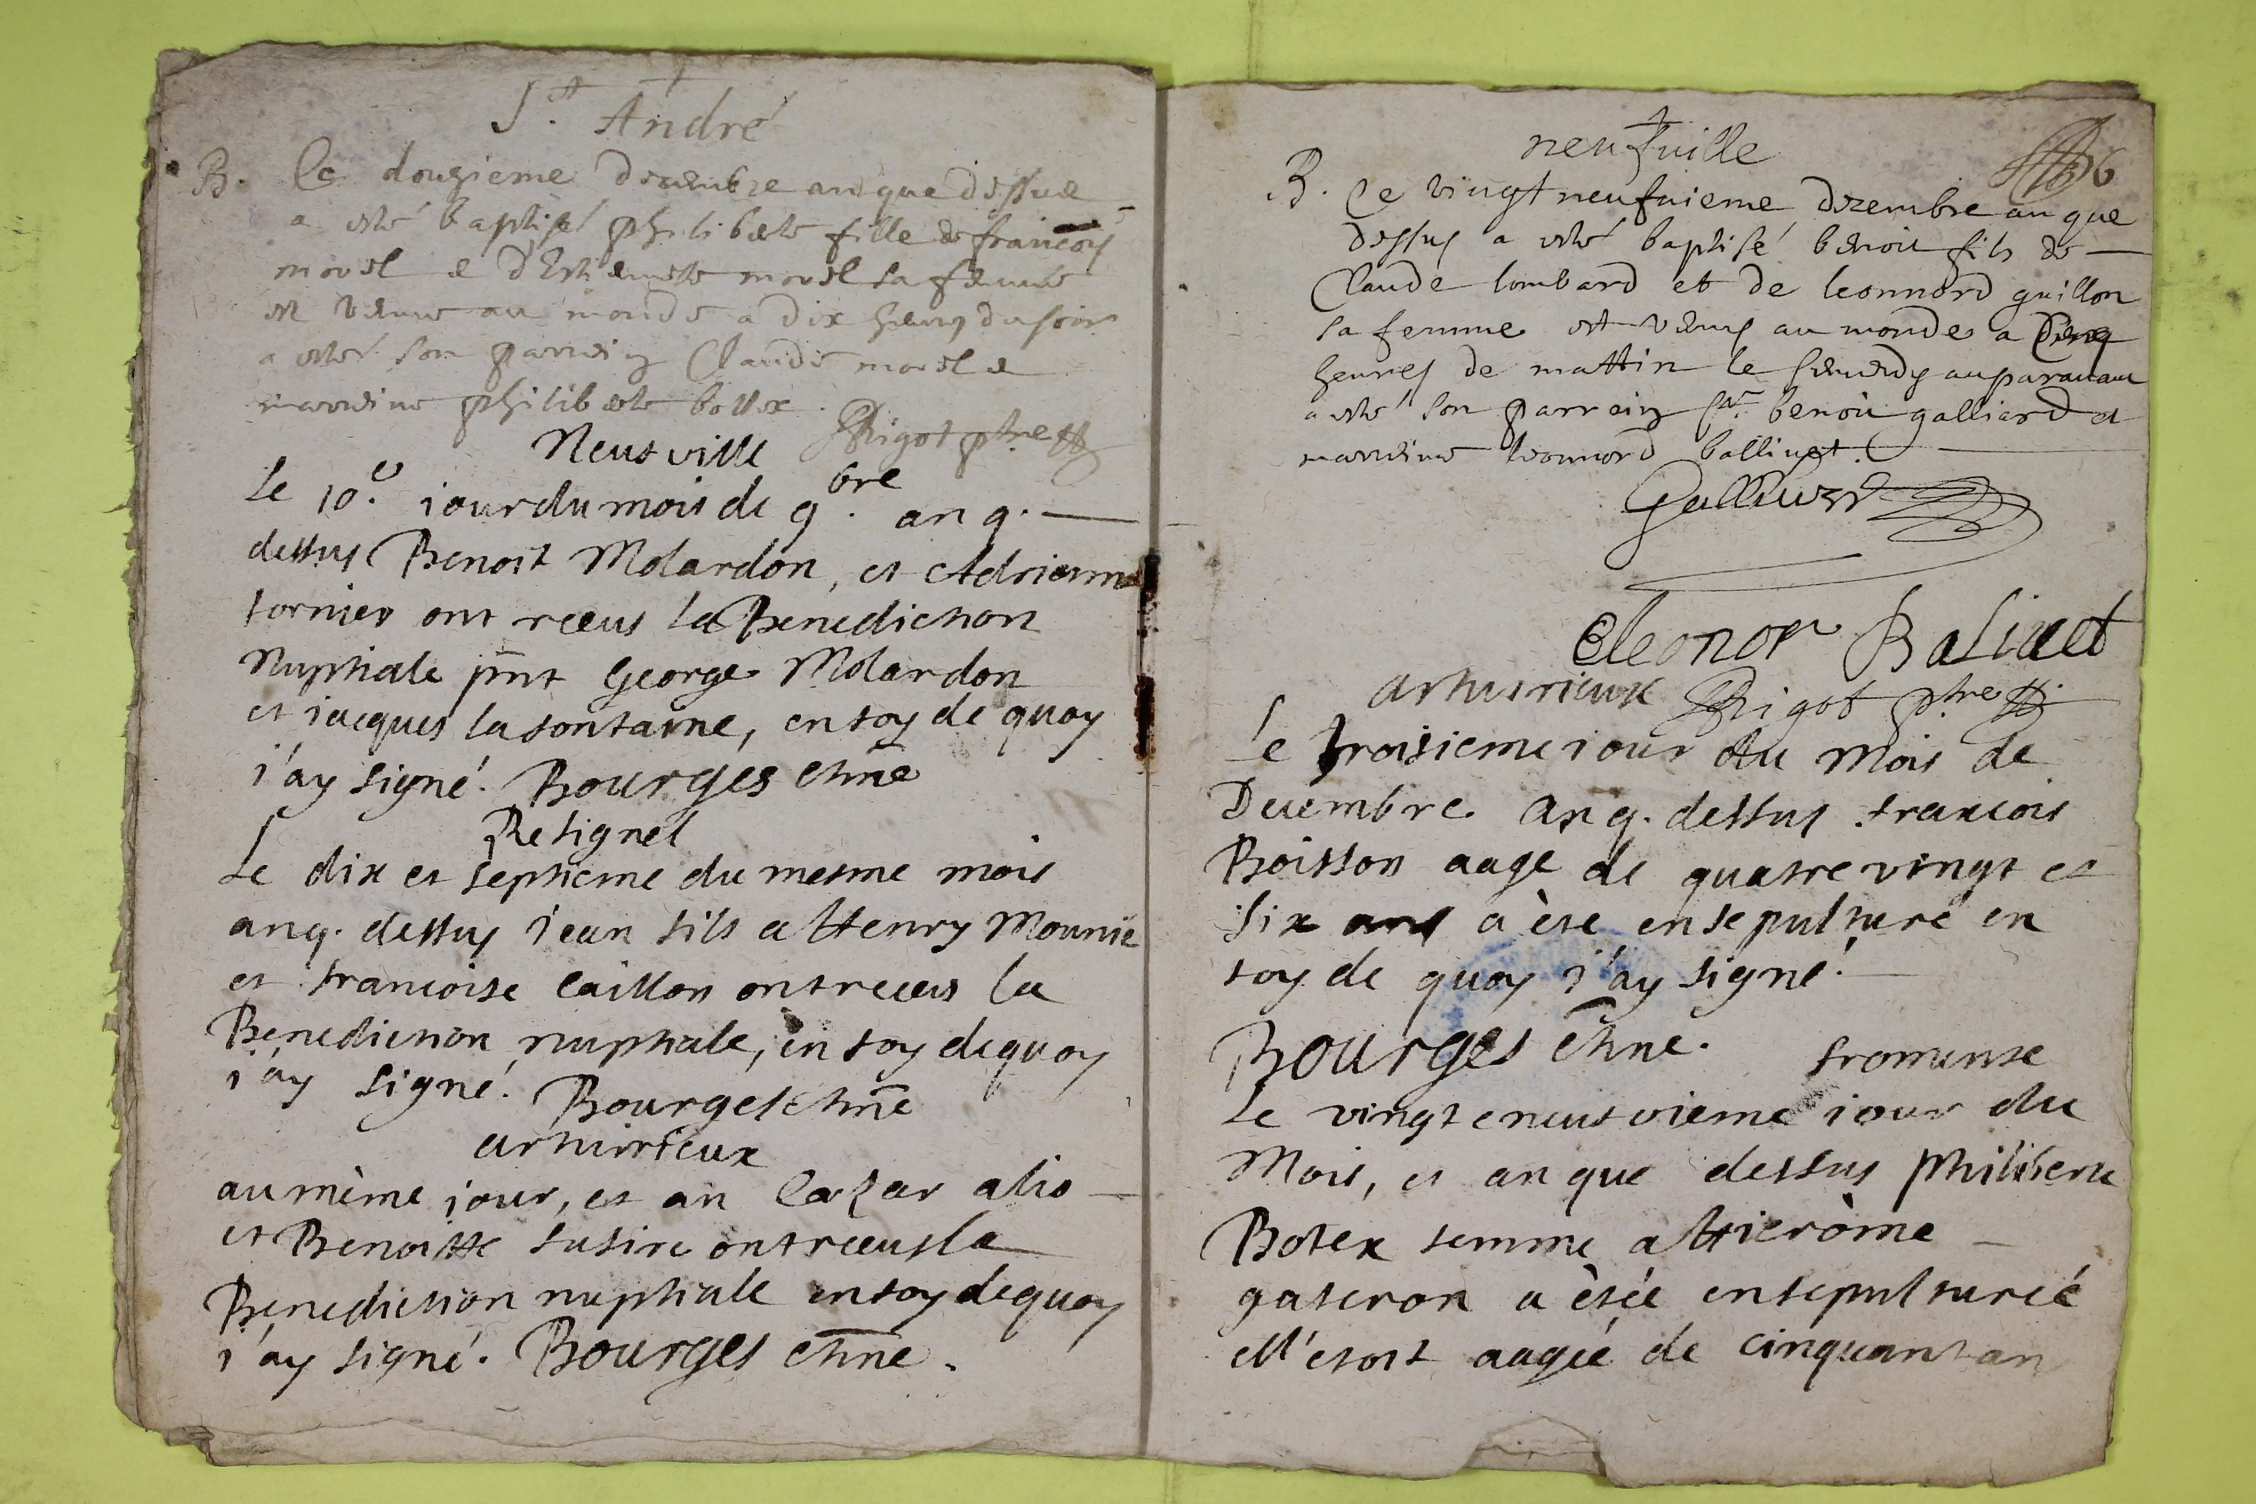 St. André
B. Ce douzieme decembre an que dessus
a esté baptisé philiberte fille de francois
morel e d'Estiennette morel sa femme
est venue au monde a dix heures du soir
a esté son parrein Claude morel e
marreine philiberte bottex.
Rigot ptre
Neufville
le 10.e iour du mois de 9.bre an q.
dessus Benoit Molardon, et Adrienne
fornier ont receus la Benediction
Nuptiale pnt George Molardon
et jacques lafontaine, en foy de quoy
j'ay signé. Bourges chne
Resignel
Le dix et septieme du mesme mois
an q. dessus Jean fils a Henry Mounie
et francoise Caillon ont receus la
Benediction nuptiale, en foy de quoy
j'ay signé. Bourges chne
arthurieux
au même jour, et an Lazar alio
et Benoitte fusire ont receus la
Benediction nuptiale en foy de quoy
j'ay signé. Bourges chne.
neufuille
6
B. Ce vingt neufuieme dezembre an que
dessus a esté baptisé benoit fils de
Claude lombard et de leonnord guillon
sa femme est venus au monde a Cinq
heures de mattin le auparauant
a esté son parrein sr. benoit galliard et
marreine leonnord ballinet.
Galliard
Eleonor Balinet
arthurieux Rigot ptre
Le troisieme iour du Mois de
Decembre an q. dessus francois
Boisson aage de quatre vingt et
six ans a èté ensepulturé en
foy de quoy j'ay signé.
Bourges chne. fromense
Le vingt e neufvieme iour du
Mois, et an que dessus philiberte
Botex femme a Hieròme
gateron a ètée ensepulturéé
ell'etoit aagéé de cinquant an